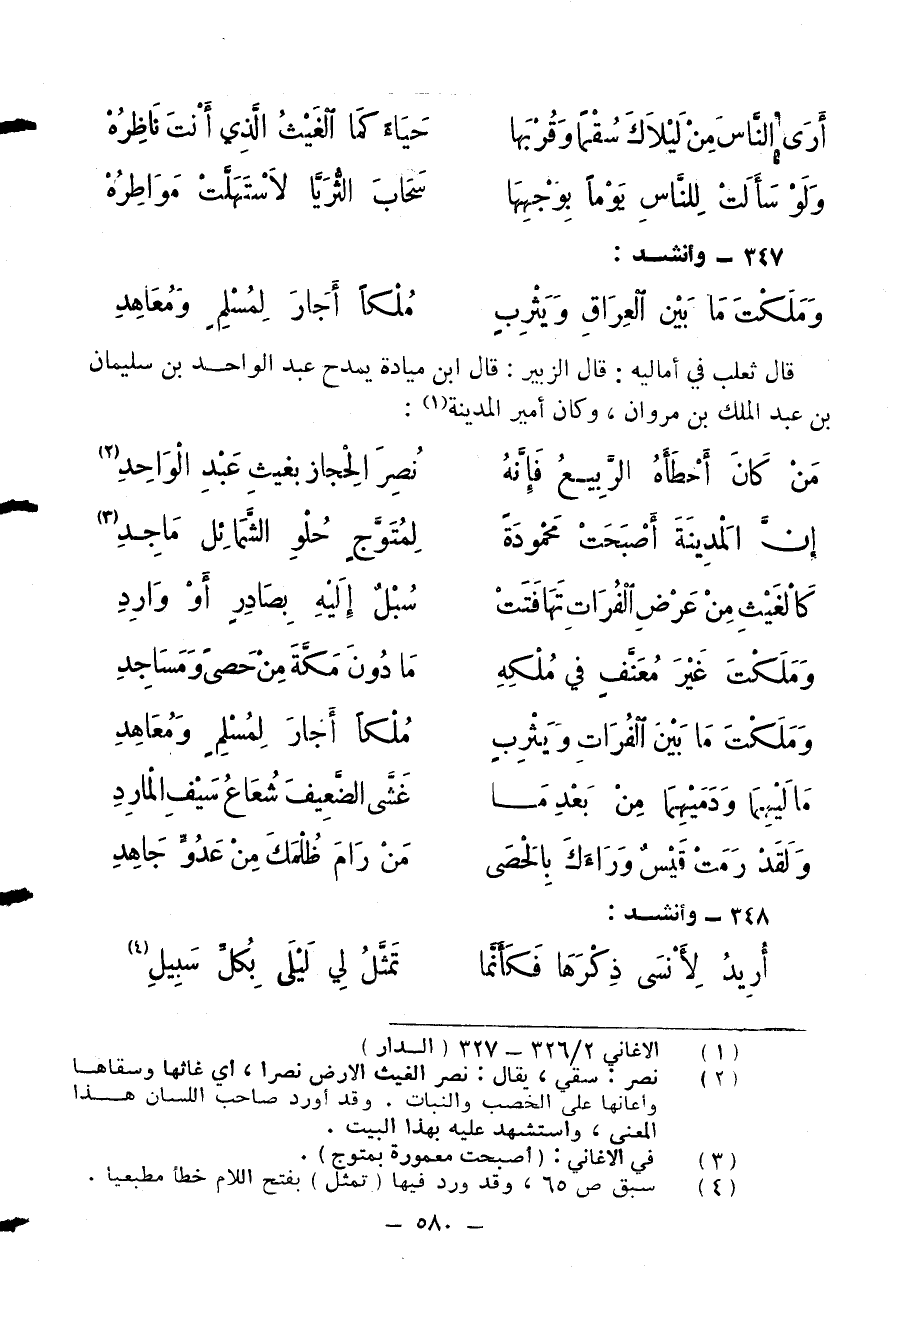 أَرَى النَّاسَ مِنْ لَيْلَاكَ سُقْمًا وَقُرْبَها حَيَاءً كَمَا الْغَيْثُ الَّذِي أَنْتَ نَاظِرُهْ
وَلَوْ سَأَلَتْ لِلنَّاسِ يَوْماً بِوَجْهِهَا سَحَابَ الثُّرَيَّا لَاسْتَهَلَّتْ مَوَاطِرُهْ
٣٤٧ – وأنشد :
وَمَلَكْتَ مَا بَيْنَ الْعِرَاقِ وَيَثْرِبٍ مُلْكاً أَجَارَ لِمُسْلِمٍ وَمُعَاهِدِ
قال ثعلب في أماليه : قال الزبير : قال ابن ميادة يمدح عبد الواحد بن سليمان
بن عبد الملك بن مروان ، وكان أمير المدينة(١) :
مَنْ كَانَ أَخْطَأَهُ الرَّبِيعُ فَإِنَّهُ نُصِرَ الْحِجَازُ بِغَيْثِ عَبْدِ الْوَاحِدِ(٢)
إِنَّ الْمَدِينَةَ أَصْبَحَتْ مَحْمُودَةً لِمُتَوَّجٍ حُلْوِ الشَّمَائِلِ مَاجِدِ(٣)
كَالْغَيْثِ مِنْ عَرْضِ الْفُرَاتِ تَهَافَتَتْ سُبْلٌ إِلَيْهِ بِصَادِرٍ أَوْ وَارِدِ
وَمَلَكْتَ غَيْرَ مُعَنَّفٍ فِي مُلْكِهِ مَا دُونَ مَكَّةَ مِنْ حَصىً وَمَسَاجِدِ
وَمَلَكْتَ مَا بَيْنَ الْفُرَاتِ وَيَثْرِبٍ مُلْكاً أَجَارَ لِمُسْلِمٍ وَمُعَاهِدِ
مَالَيْهِمَا وَدَمَيْهِمَا مِنْ بَعْدِ مَا غَشَّى الضَّعِيفَ شُعَاعُ سَيْفِ الْمَارِدِ
وَلَقَدْ رَمَتْ قَيْسٌ وَرَاءَكَ بِالْحَصَى مَنْ رَامَ ظُلْمَكَ مِنْ عَدُوٍّ جَاهِدِ
٣٤٨ – وأنشد :
أُرِيدُ لِأَنْسَى ذِكْرَهَا فَكَأَنَّمَا تَمَثَّلُ لِي لَيْلَى بِكُلِّ سَبِيلِ(٤)
(١) الاغاني ٣٢٦/٢ – ٣٢٧ (الدار)
(٢) نصر : سقي ، يقال : نصر الغيث الارض نصرا ، أي غاثها وسقاها
وأعانها على الخصب والنبات . وقد أورد صاحب اللسان هذا
المعنى ، واستشهد عليه بهذا البيت .
(٣) في الاغاني : (أصبحت معمورة بمتوج) .
(٤) سبق ص ٦٥ ، وقد ورد فيها (تمثل) بفتح اللام خطأ مطبعيا .
– ٥٨٠ –